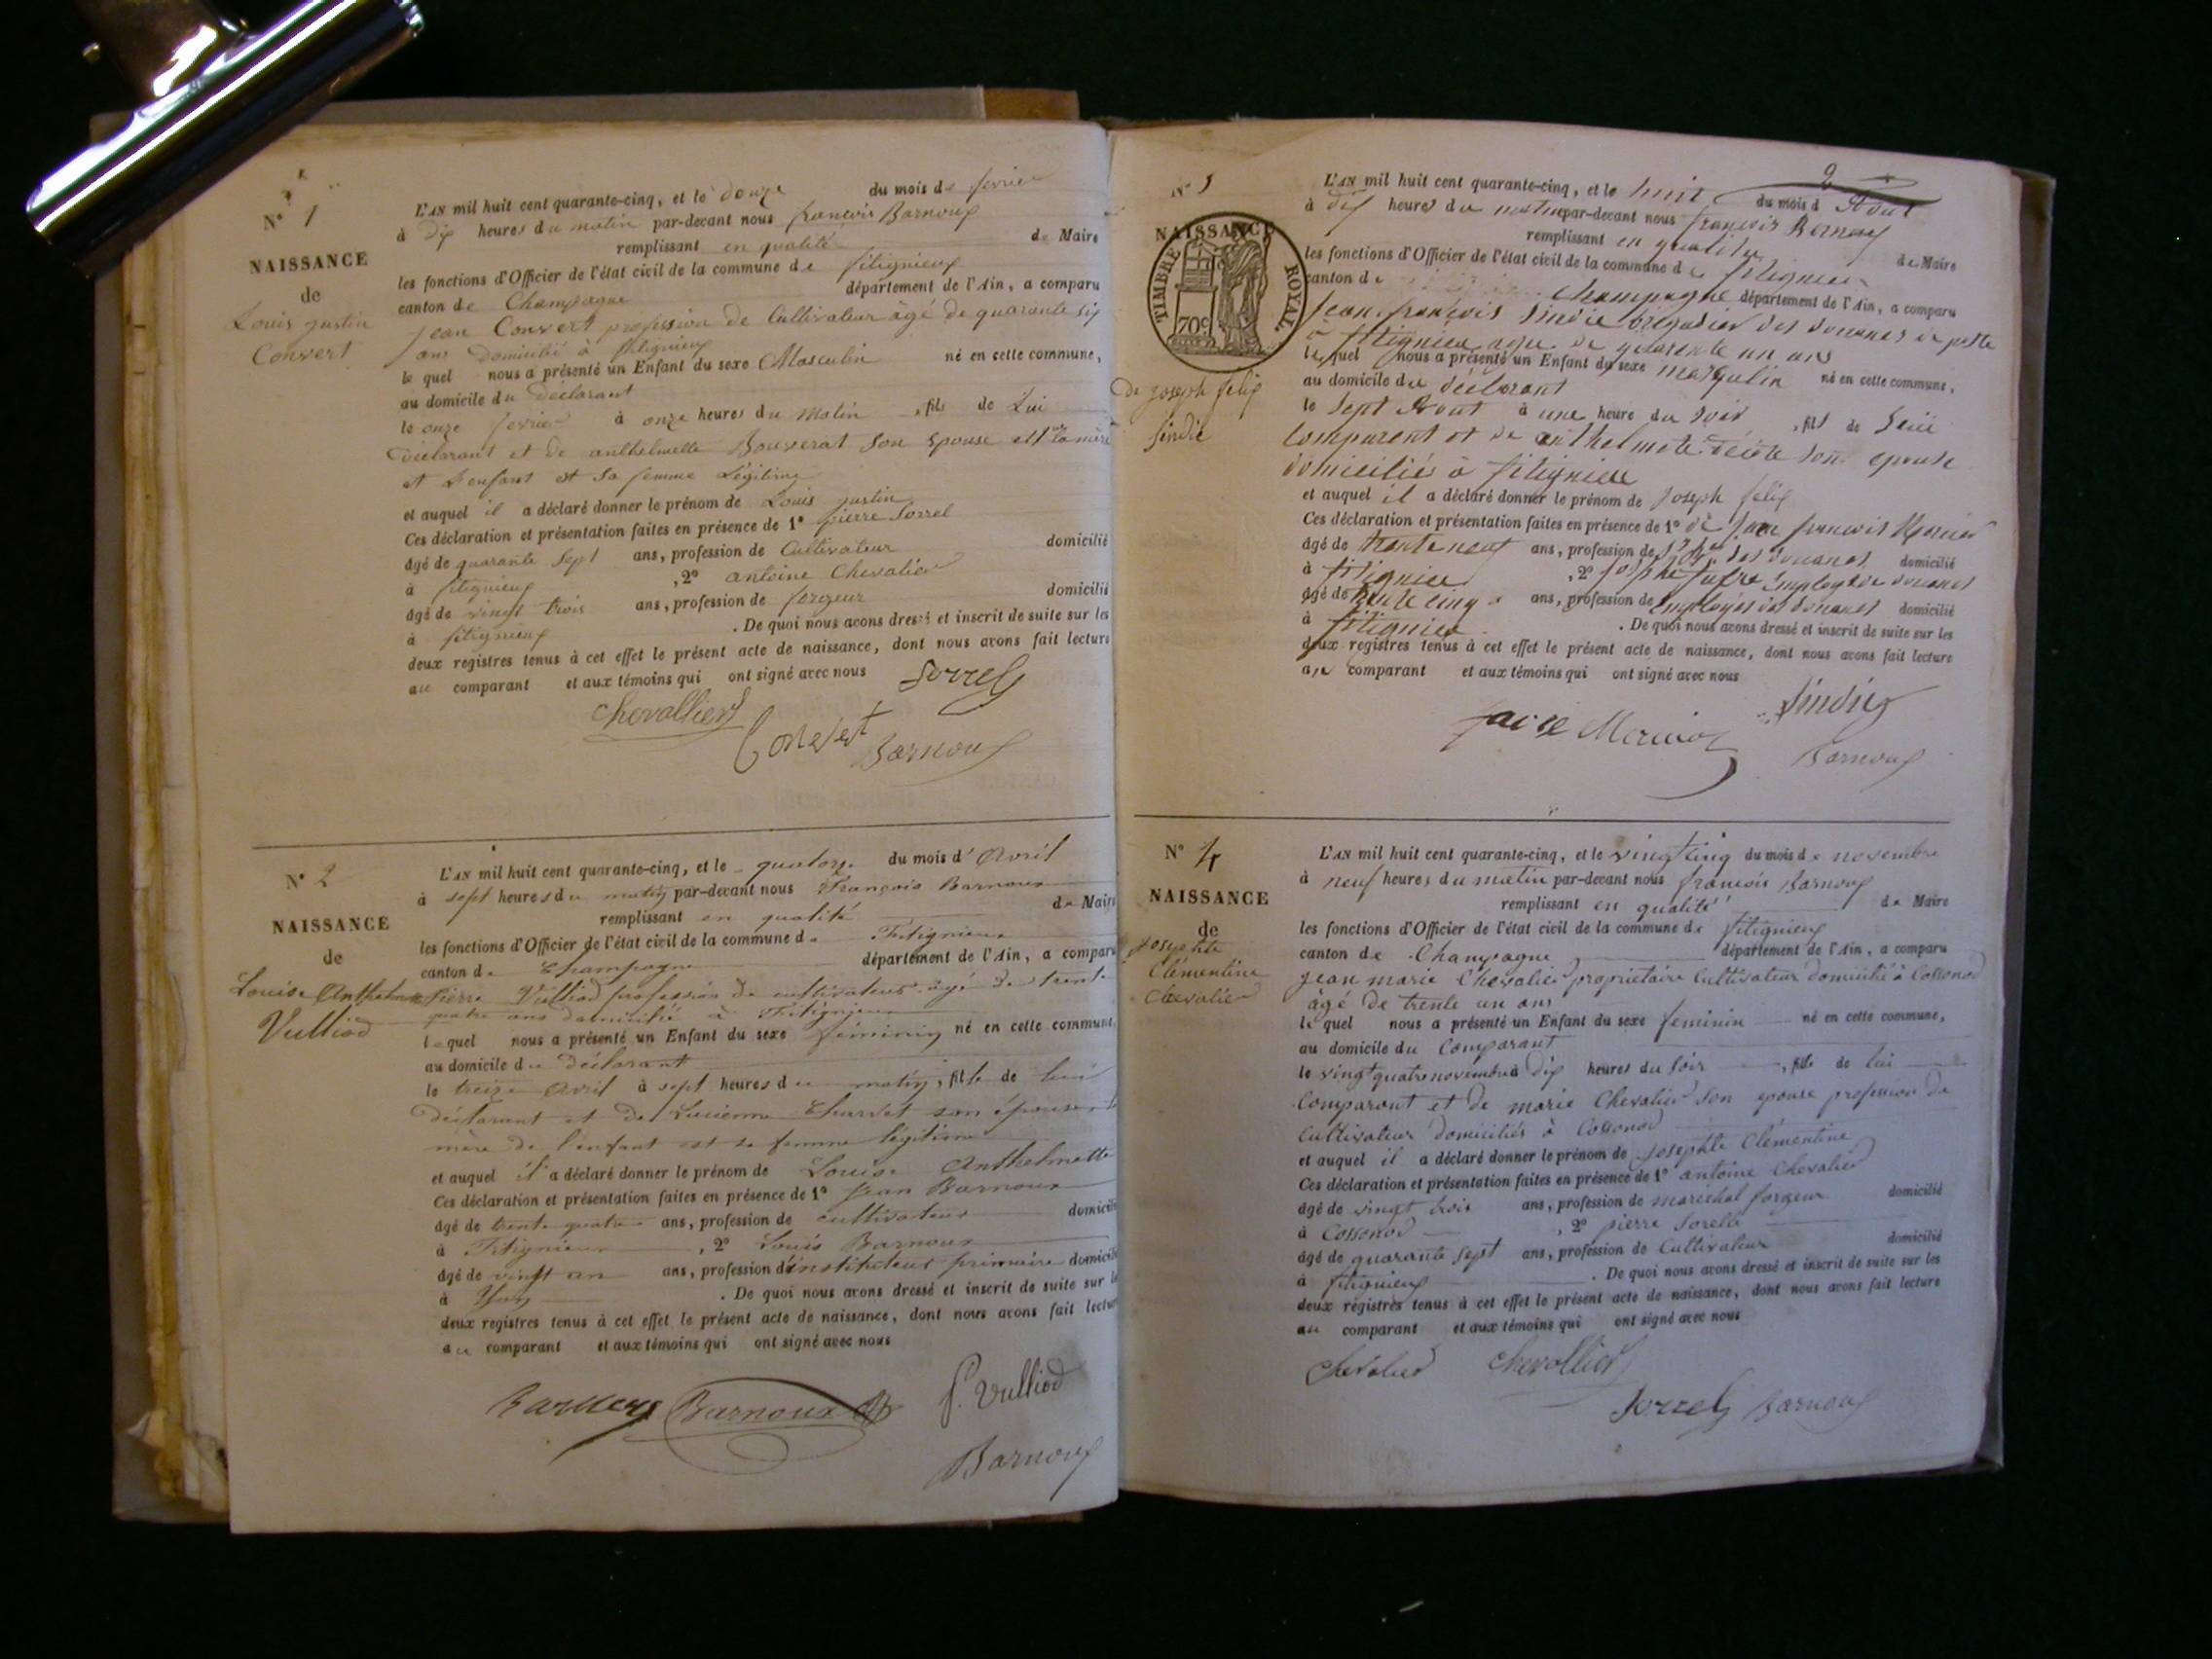 N° 1
NAISSANCE
de
Louis justin
Convert
L'AN mil huit cent quarante-cinq, et le douze du mois de fevrier
à dix heures du matin par-devant nous francois Barnoux
remplissant en qualité de Maire
les fonctions d'Officier de l'état civil de la commune de fitignieux
canton de Champagne département de l'Ain, a comparu
jean Convert profession de Cultivateur âgé de quarante six
ans domicilié à fitignieux
le quel nous a présenté un Enfant du sexe Masculin né en cette commune,
au domicile du déclarant
le onze fevrier à onze heures du matin , fils de Lui
déclarant et de anthelmette Bouverat son epouse est la mère
et L'enfant et sa femme Légitime
et auquel il a déclaré donner le prénom de Louis justin
Ces déclaration et présentation faites en présence de 1° pierre Sorrel
âgé de quarante sept ans, profession de Cultivateur domicilié
à fitignieux , 2° antoine Chevalier
âgé de vingt trois ans, profession de forgeur domicilié
à fitignieux . De quoi nous avons dressé et inscrit de suite sur les
deux registres tenus à cet effet le présent acte de naissance, dont nous avons fait lecture
au comparant et aux témoins qui ont signé avec nous
Sorrel
Chevallier
Convert
Barnoux
N° 2
NAISSANCE
de
Louise Anthelmette
Vulliod
L'AN mil huit cent quarante-cinq, et le quatorze du mois d' Avril
à sept heures du matin par-devant nous François Barnoux
remplissant en qualité de Maire
les fonctions d'Officier de l'état civil de la commune de Fitignieux
canton de Champagne département de l'Ain, a comparu
Pierre Vulliod profession de cultivateur âgé de trente
quatre ans domicilié à Fitignieux
lequel nous a présenté un Enfant du sexe féminin né en cette commune,
au domicile du déclarant
le treize Avril à sept heures du matin , fille de lui
déclarant et de Lucienne Charvet son épouse
mère de l'enfant est sa femme légitime
et auquel il a déclaré donner le prénom de Louise Anthelmette
Ces déclaration et présentation faites en présence de 1° Jean Barnoux
âgé de trente quatre ans, profession de cultivateur domicilié
à Fitignieux , 2° Louis Barnoux
âgé de vingt an ans, profession d'instituteur primaire domicilié
à . De quoi nous avons dressé et inscrit de suite sur les
deux registres tenus à cet effet le présent acte de naissance, dont nous avons fait lecture
au comparant et aux témoins qui ont signé avec nous
Barnoux
P. Vulliod
Barnoux
2
N° 3
NAISSANCE
TIMBRE ROYAL
70c
de joseph felix
sindic
L'AN mil huit cent quarante-cinq, et le huit du mois d Aout
à dix heures du matin par-devant nous francois Barnoux
remplissant en qualite de Maire
les fonctions d'Officier de l'état civil de la commune de fitignieu
canton de Champagne département de l'Ain, a comparu
Jean francois Sindic brigadier des douanes de poste
a fitignieu agee de quarente un ans
le quel nous a présenté un Enfant du sexe masqulin né en cette commune,
au domicile du déclarant
le sept Aout à une heure du soir , fils de Lui
comparent et de anthelmete son epouse
domiciliés à fitignieu
et auquel il a déclaré donner le prénom de joseph felix
Ces déclaration et présentation faites en présence de 1° francois
âgé de trente neuf ans, profession de des douanes domicilié
à fitignieu , 2° joseph employé de douanes
âgé de trente cinq ans, profession de Employés des douanes domicilié
à fitignieu . De quoi nous avons dressé et inscrit de suite sur les
deux registres tenus à cet effet le présent acte de naissance, dont nous avons fait lecture
au comparant et aux témoins qui ont signé avec nous
Sindic
Barnoux
N° 4
NAISSANCE
de
josephte
Clémentine
Chevalier
L'AN mil huit cent quarante-cinq, et le vingt cinq du mois de novembre
à neuf heures du matin par-devant nous francois Barnoux
remplissant en qualité de Maire
les fonctions d'Officier de l'état civil de la commune de fitignieux
canton de Champagne département de l'Ain, a comparu
jean marie Chevalier propriétaire Cultivateur domicilié à Cossonod
âgé de trente un ans
le quel nous a présenté un Enfant du sexe feminin né en cette commune,
au domicile du Comparant
le vingt quatre novembre à dix heures du soir , fille de lui
Comparant et de marie Chevalier son epouse profession de
Cultivateur domiciliés à Cossonod
et auquel il a déclaré donner le prénom de josephte Clémentine
Ces déclaration et présentation faites en présence de 1° antoine Chevalier
âgé de vingt trois ans, profession de marechal forgeur domicilié
à Cossonod , 2° pierre Sorelle
âgé de quarante sept ans, profession de Cultivateur domicilié
à fitignieux . De quoi nous avons dressé et inscrit de suite sur les
deux registres tenus à cet effet le présent acte de naissance, dont nous avons fait lecture
au comparant et aux témoins qui ont signé avec nous
Chevalier Chevallier
Sorrel Barnoux